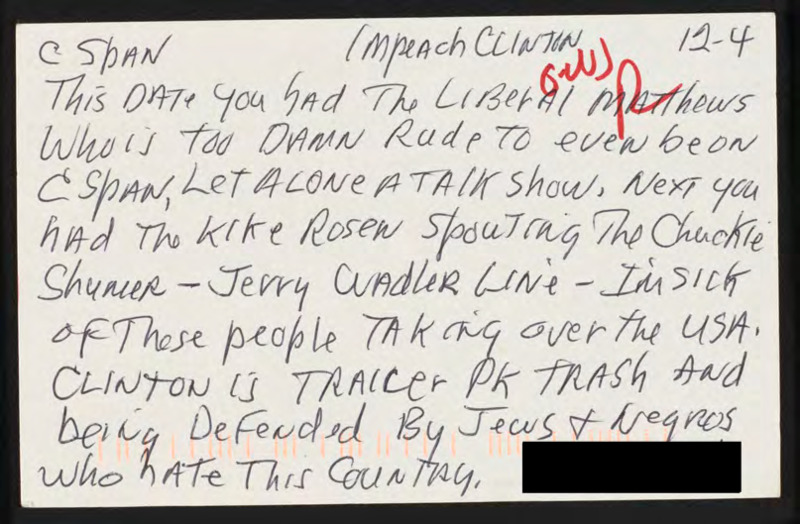 C SPAN Impeach CLINTON 12-4
This DATe you hAd The LiBerAl MAtthews
Who is too DAMN Rude To even be on
C SPAN, Let ALONe A TAlk Show. Next you
hAd The Kike Rosen Spouting The Chuckie
Shumer - Jerry WAdler LiNe - I'm SICK
of These people TAKing over the USA.
CLINTON is TRAILer PK TRASH And
being Defended By Jews & Negros
who hAte This CountRy.